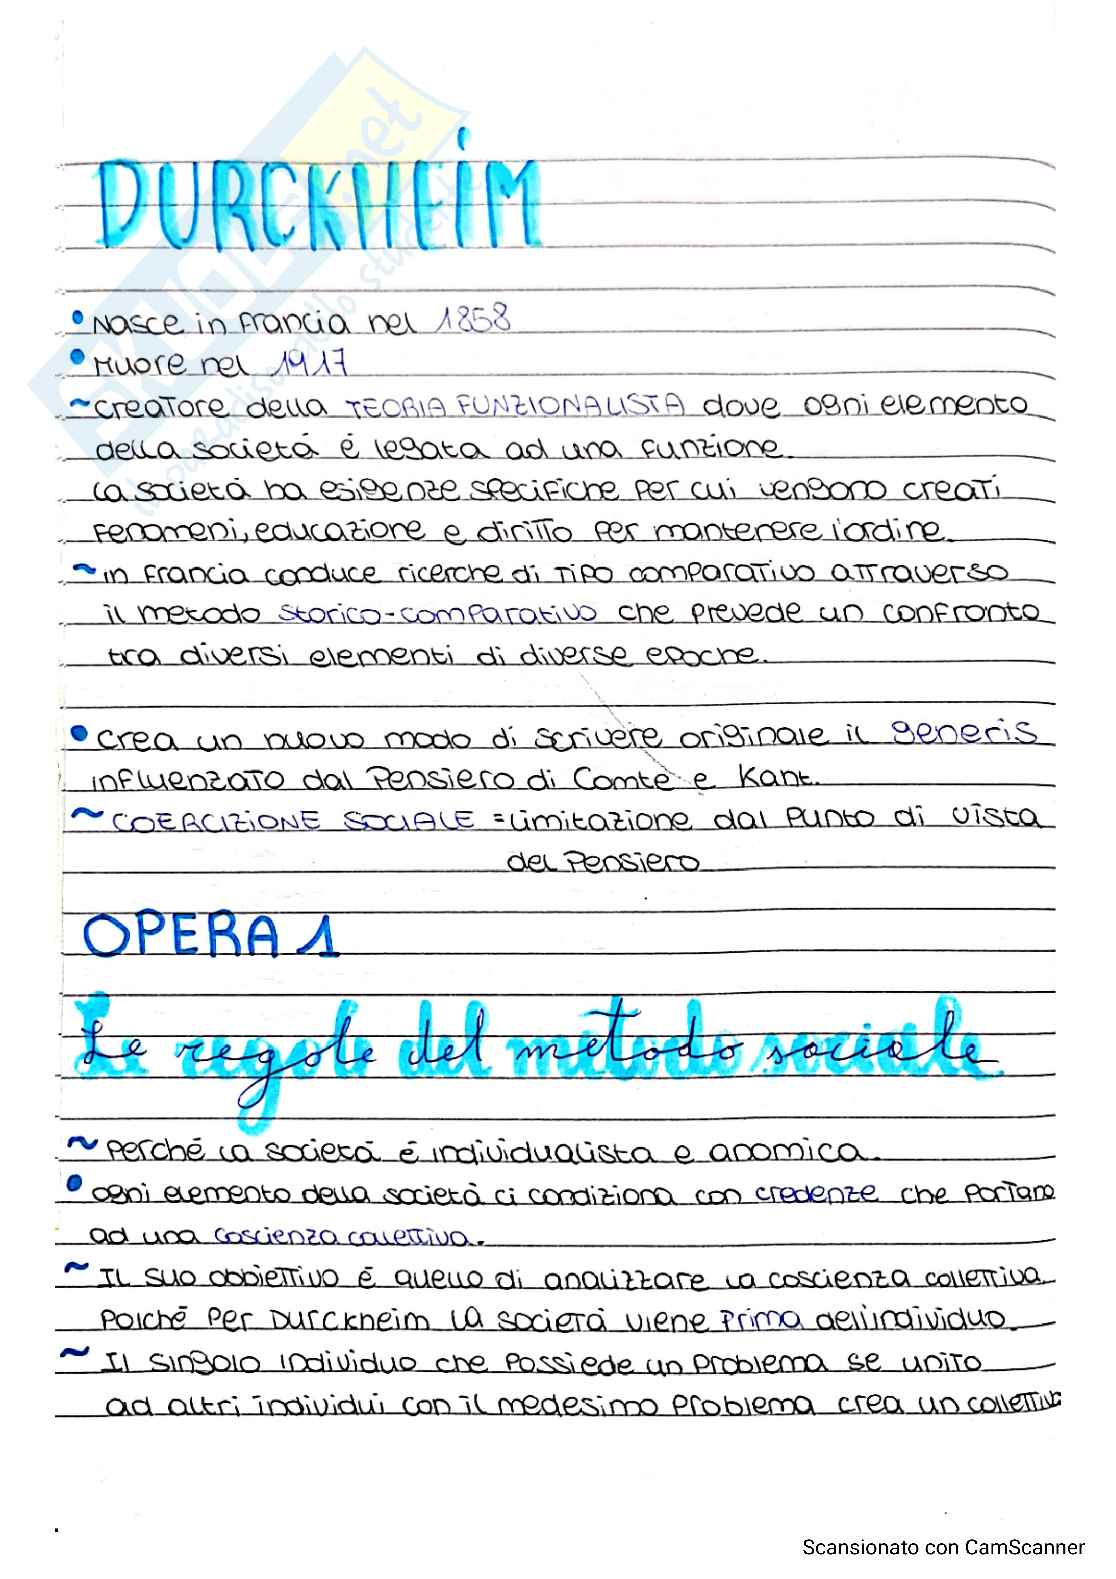 DURCKHEIM
• Nasce in Francia nel 1858
• Muore nel 1917
~ creatore della TEORIA FUNZIONALISTA dove ogni elemento
della societá é legata ad una funzione.
La societá ha esigenze specifiche per cui vengono creati
fenomeni, educazione e diritto per mantenere l'ordine.
~ in Francia conduce ricerche di tipo comparativo attraverso
il metodo storico-comparativo che prevede un confronto
tra diversi elementi di diverse epoche.
• crea un nuovo modo di scrivere originale il generis
influenzato dal Pensiero di Comte e Kant.
~ COERCIZIONE SOCIALE = limitazione dal punto di vista
del Pensiero
OPERA 1
Le regole del metodo sociale
~ Perché la societá é individualista e anomica.
• ogni elemento della societá ci condiziona con credenze che portano
ad una coscienza collettiva.
~ Il suo obbiettivo é quello di analizzare la coscienza collettiva
Poiché per Durckheim la societá viene prima dell'individuo.
~ Il singolo individuo che possiede un problema se unito
ad altri individui con il medesimo problema crea un collettivo
Scansionato con CamScanner